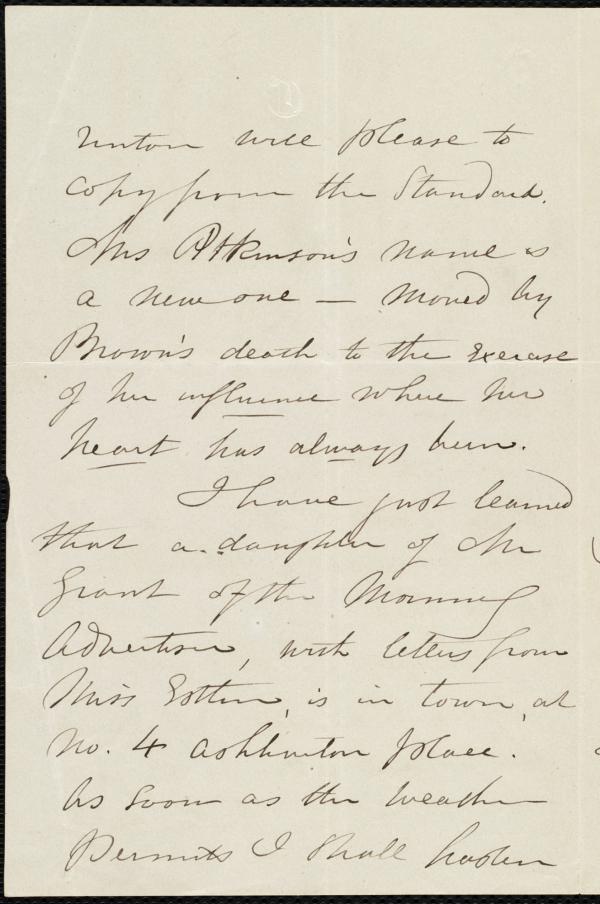 Union will please to
copy from the Standard.
Mrs Atkinson's name is
a new one — moved by
Brown's death to the exercise
of her influence where her
heart has always been.
I have just learned
that a daughter of Mr
Grant of the Morning
Advertiser, with letters from
Miss Estlin, is in town, at
No. 4 Ashburton place.
As soon as the weather
permits I shall hasten